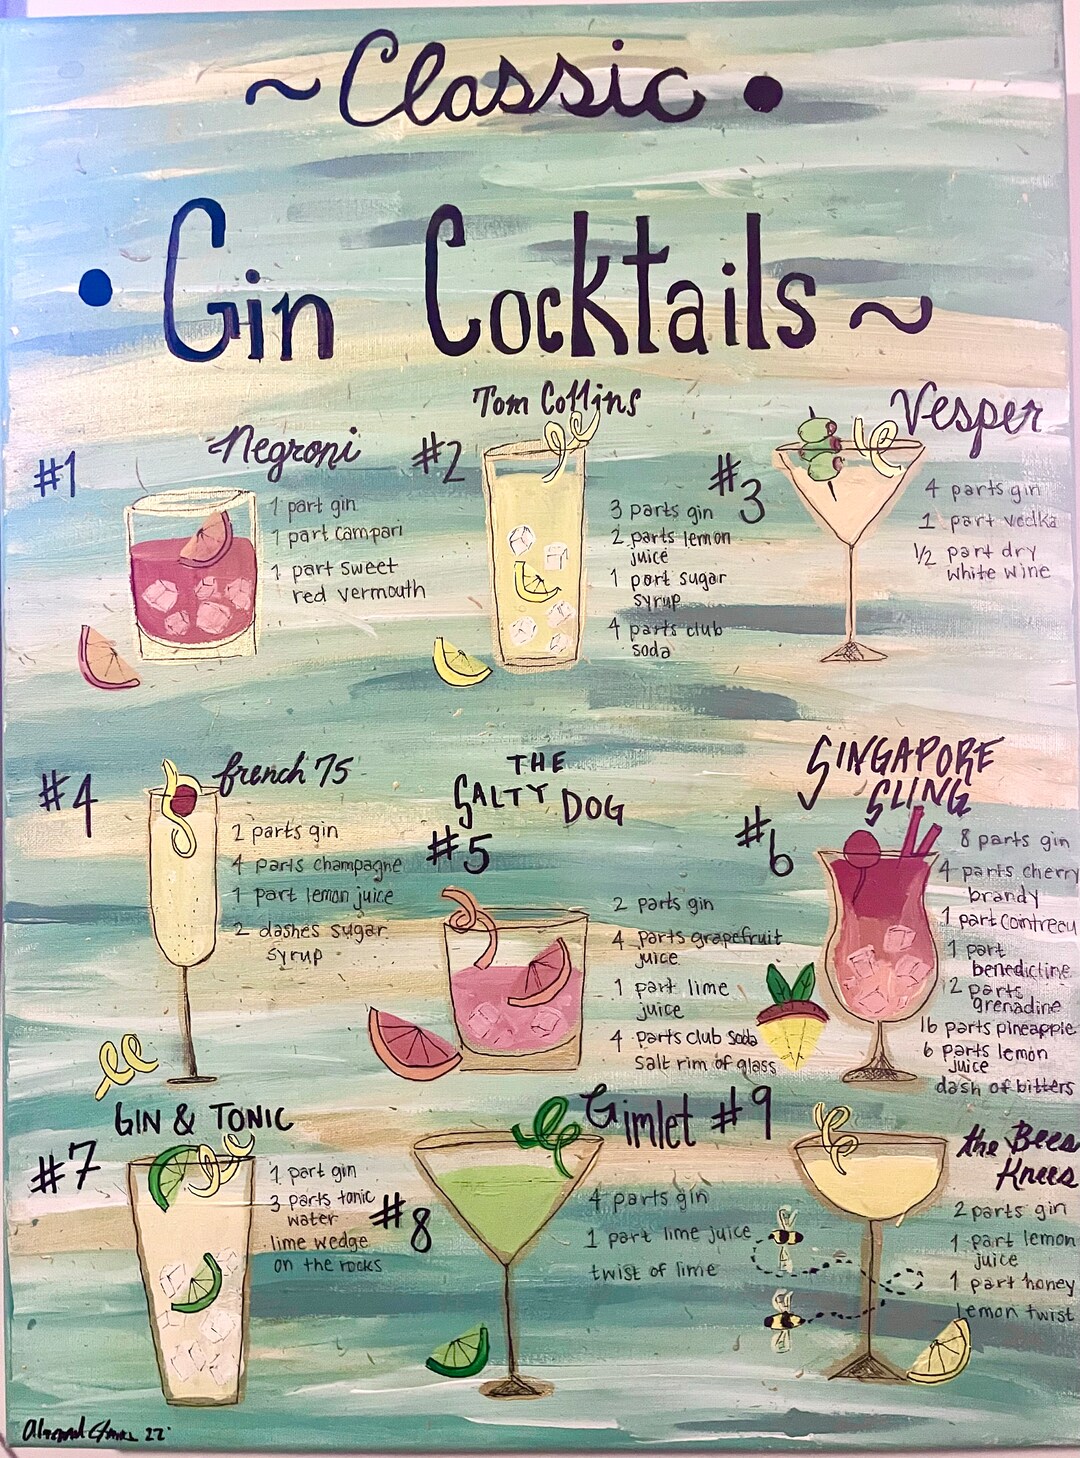 ~Classic •
• Gin Cocktails ~
#1
Negroni
1 part gin
1 part campari
1 part sweet
red vermouth
#2
Tom Collins
3 parts gin
2 parts lemon
juice
1 part sugar
syrup
4 parts club
soda
#3
Vesper
4 parts gin
1 part vodka
1/2 part dry
white wine
#4
french 75
2 parts gin
4 parts champagne
1 part lemon juice
2 dashes sugar
syrup
#5
THE
SALTY DOG
2 parts gin
4 parts grapefruit
juice
1 part lime
juice
4 parts club soda
salt rim of glass
#6
SINGAPORE
SLING
8 parts gin
4 parts cherry
brandy
1 part cointreau
1 part
benedictine
2 parts
grenadine
16 parts pineapple
6 parts lemon
juice
dash of bitters
#7
GIN & TONIC
1 part gin
3 parts tonic
water
lime wedge
on the rocks
#8
Gimlet
4 parts gin
1 part lime juice
twist of lime
#9
the Bees
Knees
2 parts gin
1 part lemon
juice
1 part honey
lemon twist
22'